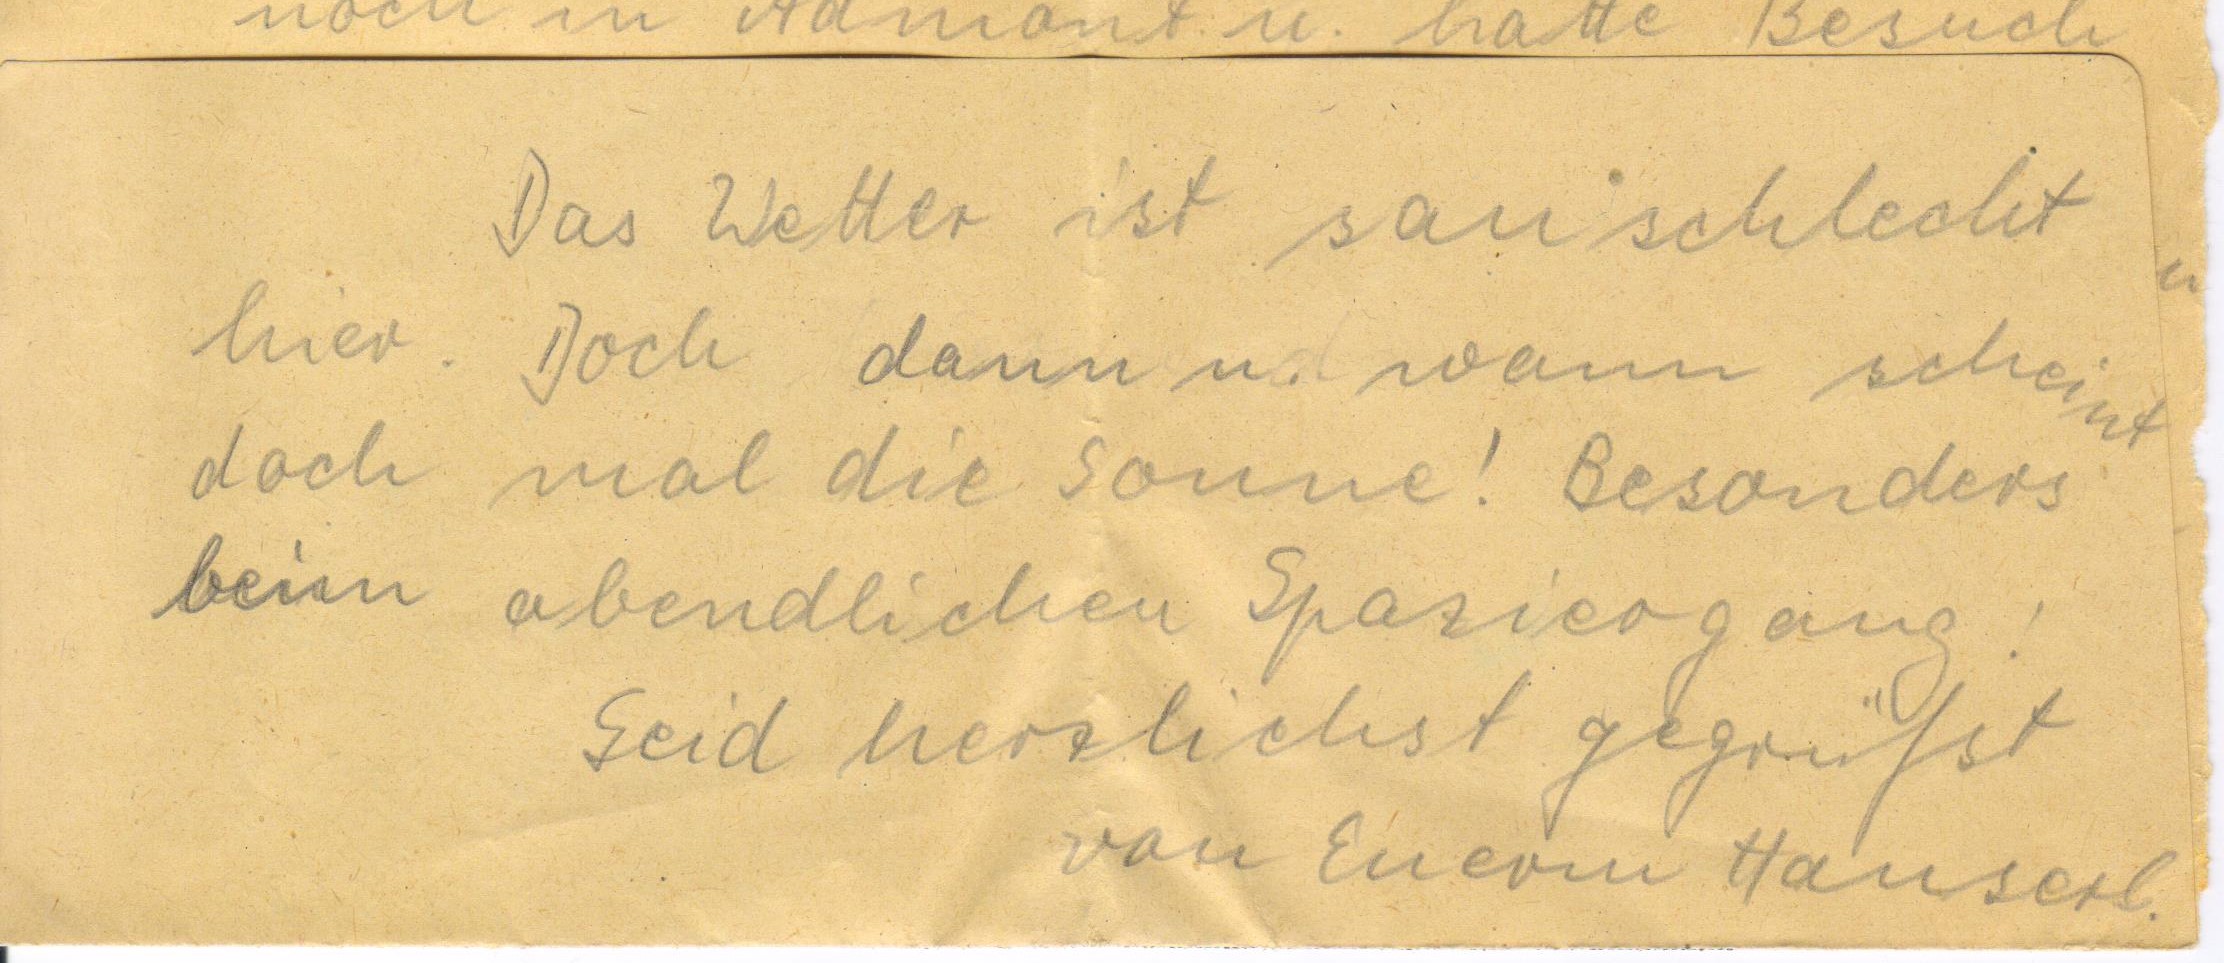 noch in Admont u. hatte Besuch
Das Wetter ist sauschlecht
hier. Doch dann u. wann scheint
doch mal die Sonne! Besonders
beim abendlichen Spaziergang!
Seid herzlichst gegrüßt
von Euerm Hanserl.